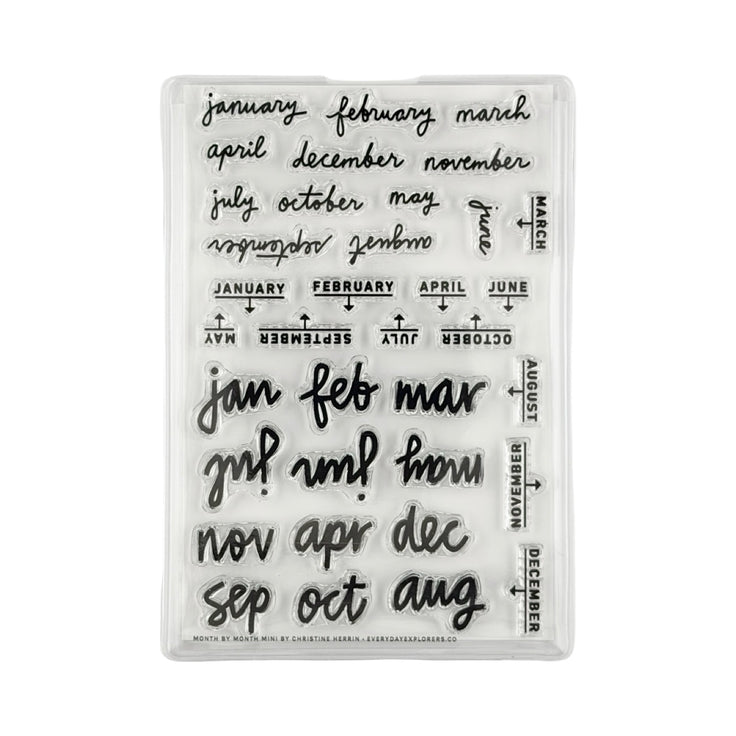 january february march
april december november
july october may june MARCH
september august
JANUARY FEBRUARY APRIL JUNE
MAY SEPTEMBER JULY OCTOBER
jan feb mar AUGUST
jul jun may NOVEMBER
nov apr dec
sep oct aug DECEMBER
MONTH BY MONTH MINI BY CHRISTINE HERRIN • EVERYDAYEXPLORERS.CO